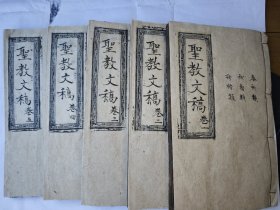 聖教文稿 卷一
聖教文稿 卷二
聖教文稿 卷三
聖教文稿 卷四
聖教文稿 卷五